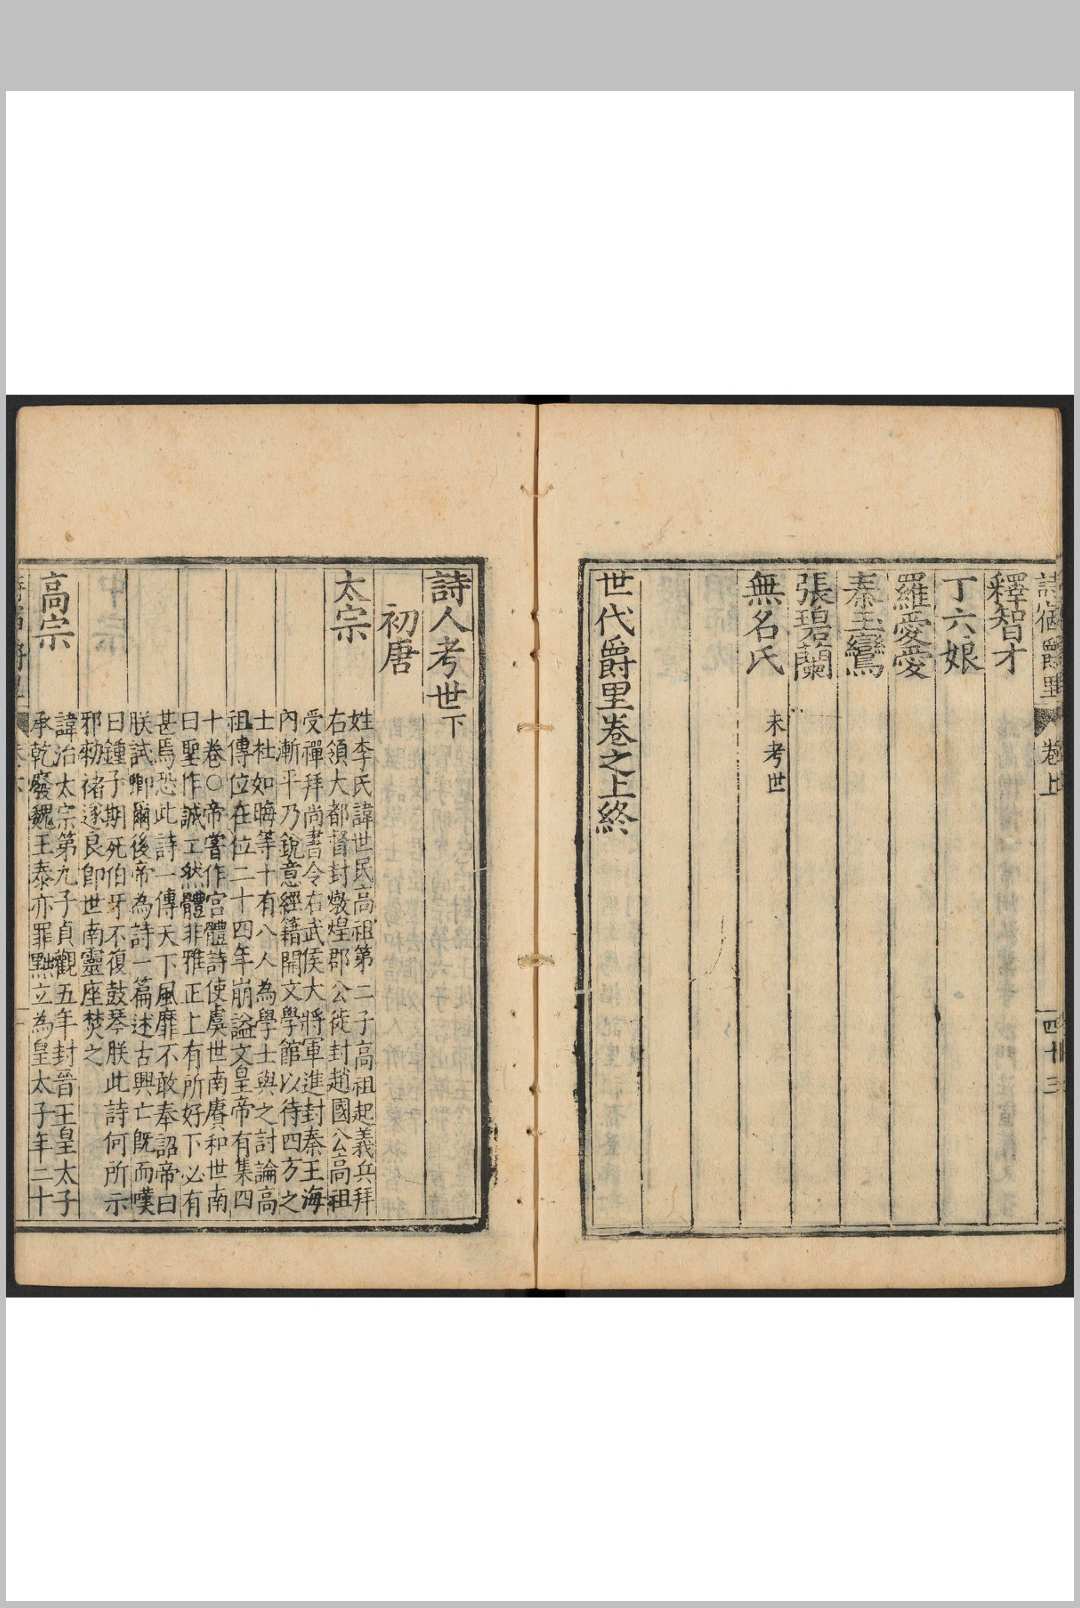 卷上
四十三
釋智才
丁六娘
羅愛愛
秦玉鸞
張碧蘭
無名氏 未考世
世代爵里卷之上終
詩人考世下
初唐
太宗
姓李氏諱世民高祖第二子高祖起義兵拜
右領大都督封燉煌郡公徙封趙國公高祖
受禪拜尚書令右武侯大將軍進封秦王海
內漸平乃銳意經籍開文學館以待四方之
士杜如晦等十有八人為學士與之討論高
祖傳位在位二十四年崩謚文皇帝有集四
十卷○帝嘗作宮體詩使虞世南賡和世南
曰聖作誠工然體非雅正上有所好下必有
甚焉恐此詩一傳天下風靡不敢奉詔帝曰
朕試卿爾後帝為詩一篇述古興亡既而嘆
曰鍾子期死伯牙不復鼓琴朕此詩何所示
邪勑禇遂良即世南靈座焚之
高宗
諱治太宗第九子貞觀五年封晉王皇太子
承乾廢魏王泰亦罪黜立為皇太子年二十